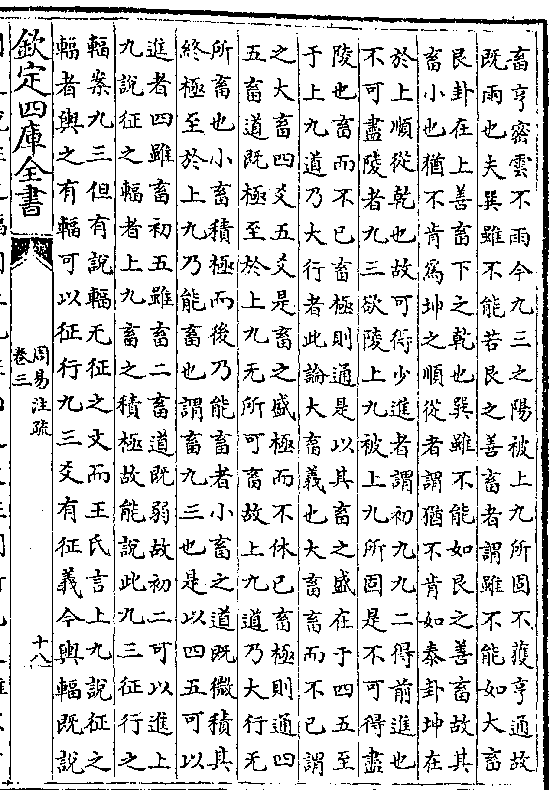 畜亨密雲不雨今九三之陽被上九所固不獲亨通故
既雨也夫巽雖不能若艮之善畜者謂雖不能如大畜
艮卦在上善畜下之乾也巽雖不能如艮之善畜故其
畜小也猶不肯為坤之順從者謂猶不肯如泰卦坤在
於上順從乾也故可得少進者謂初九九二得前進也
不可盡陵者九三欲陵上九被上九所固是不可得盡
陵也畜而不已畜極則通是以其畜之盛在于四五至
于上九道乃大行者此論大畜義也大畜畜而不已謂
之大畜四爻五爻是畜之盛極而不休已畜極則通四
五畜道既極至於上九无所可畜故上九道乃大行无
所畜也小畜積極而後乃能畜者小畜之道既微積其
終極至於上九乃能畜也謂畜九三也是以四五可以
進者四雖畜初五雖畜二畜道既弱故初二可以進上
九說征之輻者上九畜之積極故能說此九三征行之
輻案九三但有說輻无征之文而王氏言上九說征之
輻者輿之有輻可以征行九三爻有征義今輿輻既說
欽定四庫全書
周易注疏
卷三
十八